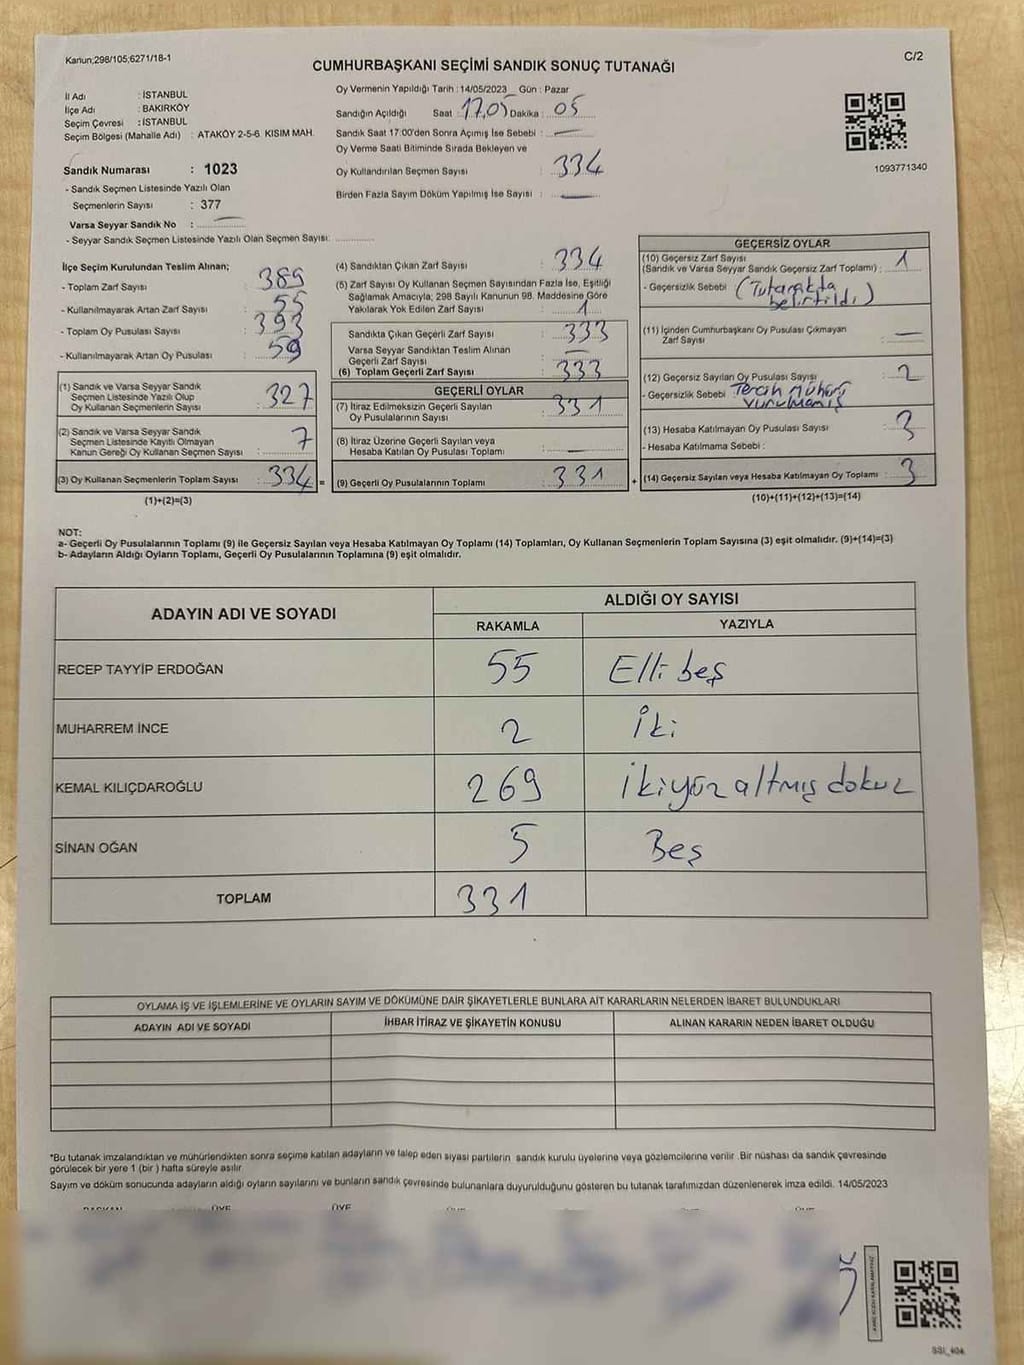 Kanun;298/105;6271/18-1
C/2
CUMHURBAŞKANI SEÇİMİ SANDIK SONUÇ TUTANAĞI
İl Adı : İSTANBUL
İlçe Adı : BAKIRKÖY
Seçim Çevresi : İSTANBUL
Seçim Bölgesi (Mahalle Adı) : ATAKÖY 2-5-6. KISIM MAH.
Sandık Numarası : 1023
- Sandık Seçmen Listesinde Yazılı Olan
Seçmenlerin Sayısı : 377
Varsa Seyyar Sandık No : —
- Seyyar Sandık Seçmen Listesinde Yazılı Olan Seçmen Sayısı:
Oy Vermenin Yapıldığı Tarih : 14/05/2023 Gün : Pazar
Sandığın Açıldığı Saat : 17.05 Dakika : 05
Sandık Saat 17:00'den Sonra Açımış İse Sebebi : —
Oy Verme Saati Bitiminde Sırada Bekleyen ve
Oy Kullandırılan Seçmen Sayısı : 334
Birden Fazla Sayım Döküm Yapılmış İse Sayısı : —
1093771340
İlçe Seçim Kurulundan Teslim Alınan;
- Toplam Zarf Sayısı : 389
- Kullanılmayarak Artan Zarf Sayısı : 55
- Toplam Oy Pusulası Sayısı : 393
- Kullanılmayarak Artan Oy Pusulası : 59
(1) Sandık ve Varsa Seyyar Sandık
Seçmen Listesinde Yazılı Olup
Oy Kullanan Seçmenlerin Sayısı : 327
(2) Sandık ve Varsa Seyyar Sandık
Seçmen Listesinde Kayıtlı Olmayan
Kanun Gereği Oy Kullanan Seçmen Sayısı : 7
(3) Oy Kullanan Seçmenlerin Toplam Sayısı : 334 =
(1)+(2)=(3)
(4) Sandıktan Çıkan Zarf Sayısı : 334
(5) Zarf Sayısı Oy Kullanan Seçmen Sayısından Fazla İse, Eşitliği
Sağlamak Amacıyla; 298 Sayılı Kanunun 98. Maddesine Göre
Yakılarak Yok Edilen Zarf Sayısı : 1
Sandıkta Çıkan Geçerli Zarf Sayısı : 333
Varsa Seyyar Sandıktan Teslim Alınan
Geçerli Zarf Sayısı : —
(6) Toplam Geçerli Zarf Sayısı : 333
GEÇERLİ OYLAR
(7) İtiraz Edilmeksizin Geçerli Sayılan
Oy Pusulalarının Sayısı : 331
(8) İtiraz Üzerine Geçerli Sayılan veya
Hesaba Katılan Oy Pusulası Toplamı : —
(9) Geçerli Oy Pusulalarının Toplamı : 331 +
GEÇERSİZ OYLAR
(10) Geçersiz Zarf Sayısı
(Sandık ve Varsa Seyyar Sandık Geçersiz Zarf Toplamı) : 1
- Geçersizlik Sebebi (Tutanakta
belirtildi)
(11) İçinden Cumhurbaşkanı Oy Pusulası Çıkmayan
Zarf Sayısı : —
(12) Geçersiz Sayılan Oy Pusulası Sayısı : 2
- Geçersizlik Sebebi : Tercih mührü
vurulmamış
(13) Hesaba Katılmayan Oy Pusulası Sayısı : 3
- Hesaba Katılmama Sebebi :
(14) Geçersiz Sayılan veya Hesaba Katılmayan Oy Toplamı : 3
(10)+(11)+(12)+(13)=(14)
NOT:
a- Geçerli Oy Pusulalarının Toplamı (9) ile Geçersiz Sayılan veya Hesaba Katılmayan Oy Toplamı (14) Toplamları, Oy Kullanan Seçmenlerin Toplam Sayısına (3) eşit olmalıdır. (9)+(14)=(3)
b- Adayların Aldığı Oyların Toplamı, Geçerli Oy Pusulalarının Toplamına (9) eşit olmalıdır.
ADAYIN ADI VE SOYADI
ALDIĞI OY SAYISI
RAKAMLA YAZIYLA
RECEP TAYYİP ERDOĞAN 55 Elli beş
MUHARREM İNCE 2 İki
KEMAL KILIÇDAROĞLU 269 ikiyüz altmış dokuz
SİNAN OĞAN 5 Beş
TOPLAM 331
OYLAMA İŞ VE İŞLEMLERİNE VE OYLARIN SAYIM VE DÖKÜMÜNE DAİR ŞİKAYETLERLE BUNLARA AİT KARARLARIN NELERDEN İBARET BULUNDUKLARI
ADAYIN ADI VE SOYADI İHBAR İTİRAZ VE ŞİKAYETİN KONUSU ALINAN KARARIN NEDEN İBARET OLDUĞU
*Bu tutanak imzalandıktan ve mühürlendikten sonra seçime katılan adayların ve talep eden siyasi partilerin sandık kurulu üyelerine veya gözlemcilerine verilir. Bir nüshası da sandık çevresinde
görülecek bir yere 1 (bir) hafta süreyle asılır.
Sayım ve döküm sonucunda adayların aldığı oyların sayılarını ve bunların sandık çevresinde bulunanlara duyurulduğunu gösteren bu tutanak tarafımızdan düzenlenerek imza edildi. 14/05/2023
BAŞKAN ÜYE ÜYE ÜYE ÜYE ÜYE